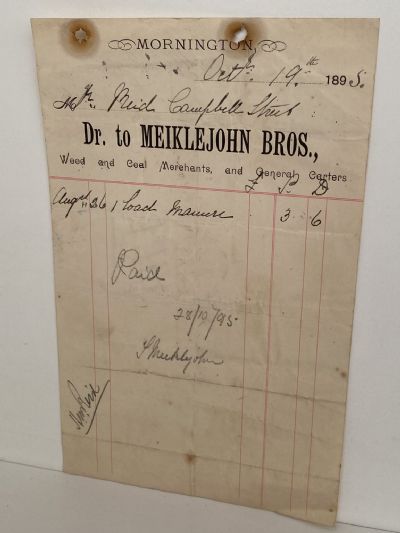 MORNINGTON,
Octr. 19th 1895.
Mr. Reid Campbell Street
Dr. to MEIKLEJOHN BROS.,
Wood and Coal Merchants, and General Carters
£ S D
Augst 26 1 Load Manure 3 6
Paid
28/10/95
Meiklejohn
Reid